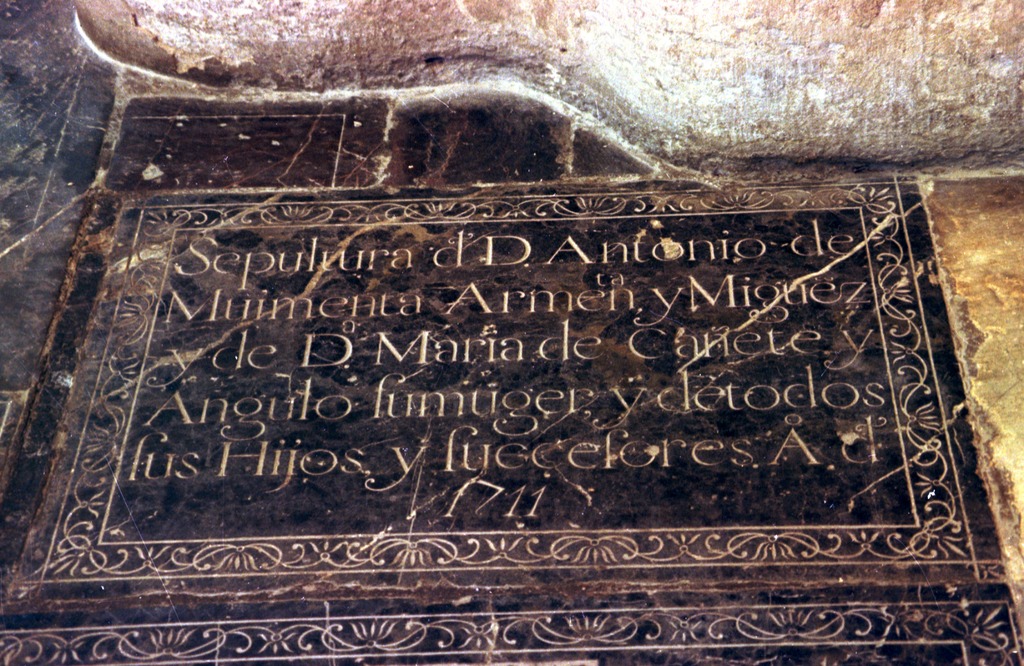 Sepultura dͤ D. Antonio de
Muimenta Armenᵗᵃ y Miguez
y de D.ᵃ Maria de Cañete y
Angulo ſumuger, ÿ dė todos
ſus Hijos, y ſucceſores. A. dͤ
1711